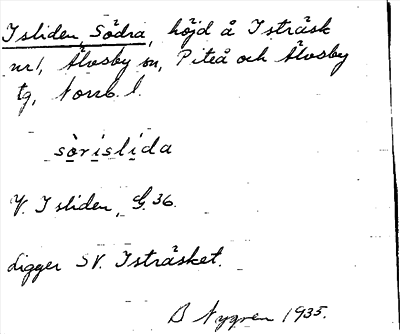 Isliden, Södra, höjd å Isträsk
nr 1, Älvsby sn, Piteå och Älvsby
tg, Norrb. l.
sörislida
V. Isliden, G. 36.
Ligger SV. Isträsket.
B Nygren 1935.